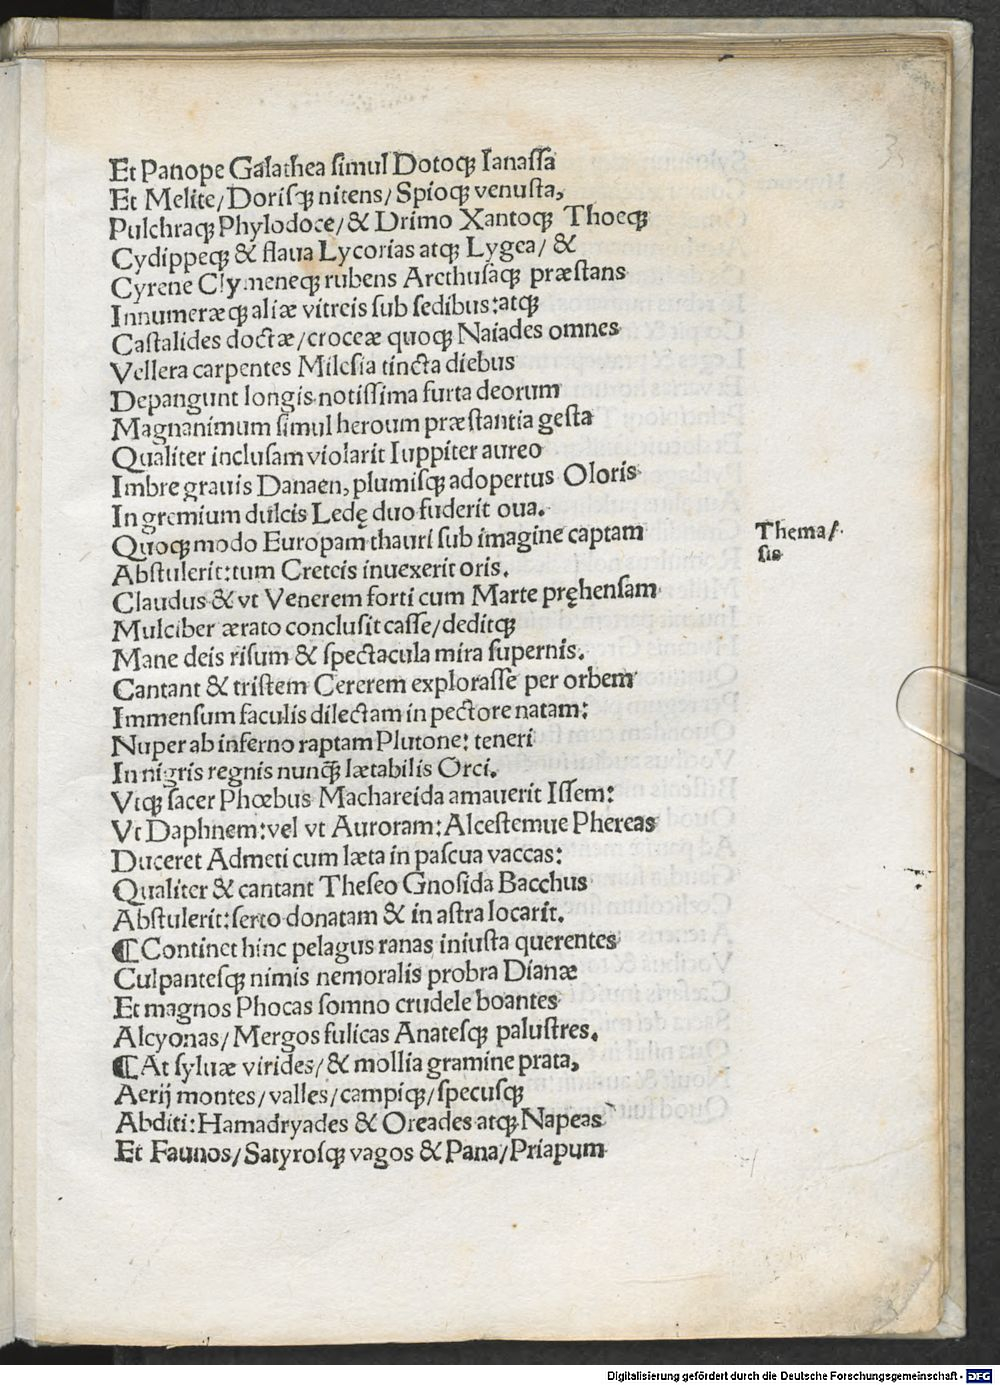 Et Panope Galathea ſimul Dotoqꝫ Ianaſſa
Et Melite/Doriſqꝫ nitens/Spioqꝫ venuſta,
Pulchraqꝫ Phylodoce/& Drimo Xantoqꝫ Thoeqꝫ
Cydippeqꝫ & flaua Lycorias atqꝫ Lygea/ &
Cyrene Clymeneqꝫ rubens Arethuſaqꝫ præſtans
Innumeræqꝫ aliæ vitreis ſub ſedibus:atqꝫ
Caſtalides doctæ/croceæ quoqꝫ Naiades omnes
Vellera carpentes Mileſia tincta diebus
Depangunt longis notiſſima furta deorum
Magnanimum ſimul heroum præſtantia geſta
Qualiter incluſam violarit Iuppiter aureo
Imbre grauis Danaen, plumiſqꝫ adopertus Oloris
In gremium dulcis Ledę duo fuderit oua.
Quoqꝫ modo Europam thauri ſub imagine captam
Abſtulerit:tum Creteis inuexerit oris.
Claudus & vt Venerem forti cum Marte pręhenſam
Mulciber ærato concluſit caſſe/deditqꝫ
Mane deis riſum & ſpectacula mira ſupernis.
Cantant & triſtem Cererem exploraſſe per orbem
Immenſum faculis dilectam in pectore natam:
Nuper ab inferno raptam Plutone: teneri
In nigris regnis nunq̃ꝫ lætabilis Orci.
Vtqꝫ ſacer Phœbus Machareida amauerit Iſſem:
Vt Daphnem:vel vt Auroram:Alceſtemue Phereas
Duceret Admeti cum læta in paſcua vaccas:
Qualiter & cantant Theſeo Gnoſida Bacchus
Abſtulerit:ſerto donatam & in aſtra locarit.
¶ Continet hinc pelagus ranas iniuſta querentes
Culpanteſqꝫ nimis nemoralis probra Dianæ
Et magnos Phocas ſomno crudele boantes
Alcyonas/Mergos fulicas Anateſqꝫ paluſtres.
¶ At ſyluæ virides/& mollia gramine prata,
Aerij montes/valles/campiqꝫ/ſpecuſqꝫ
Abditi:Hamadryades & Oreades atqꝫ Napeas
Et Faunos/Satyroſqꝫ vagos & Pana/Priapum
Thema/
ſis
3
Digitalisierung gefördert durch die Deutsche Forschungsgemeinschaft - DFG